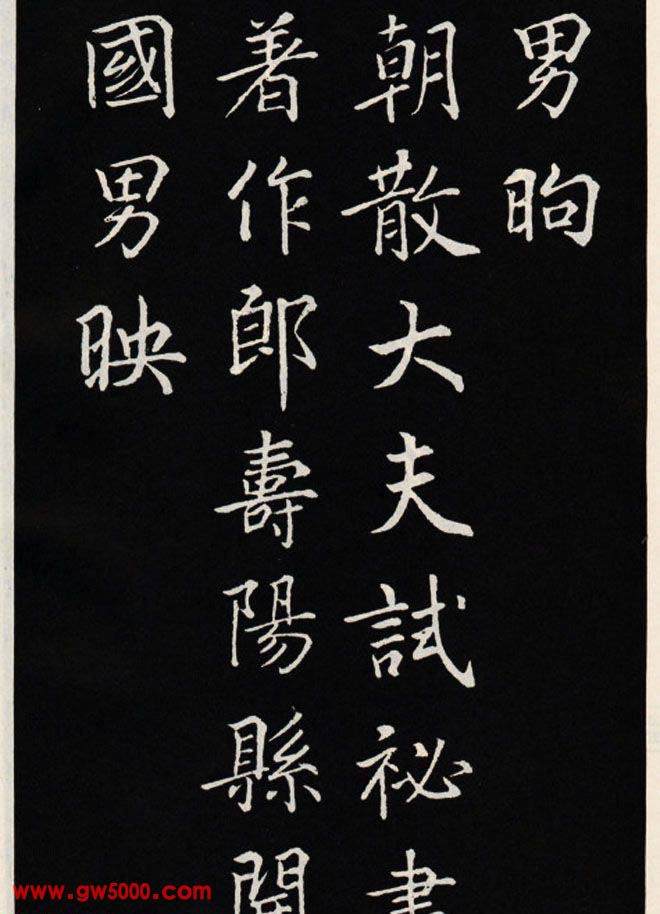 男昫
朝散大夫試祕書
著作郎壽陽縣開
國男映
www.gw5000.com